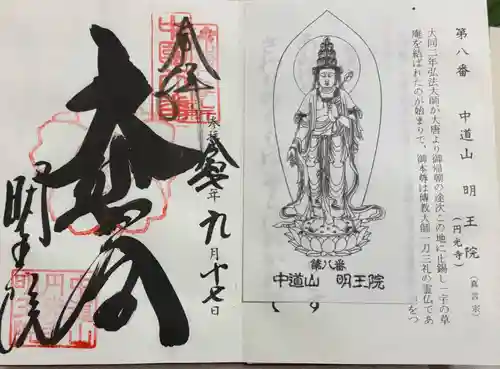 第八番 中道山 明王院
(円光寺)
(真言宗)
大同二年弘法大師が大唐より御帰朝の途次この地に止錫し一宇の草
庵を結ばれたのが始まりで、御本尊は傳教大師一刀三礼の霊仏であ
をつ
第八番
中道山 明王院
奉拝
年九月十七日
大悲殿
明王院